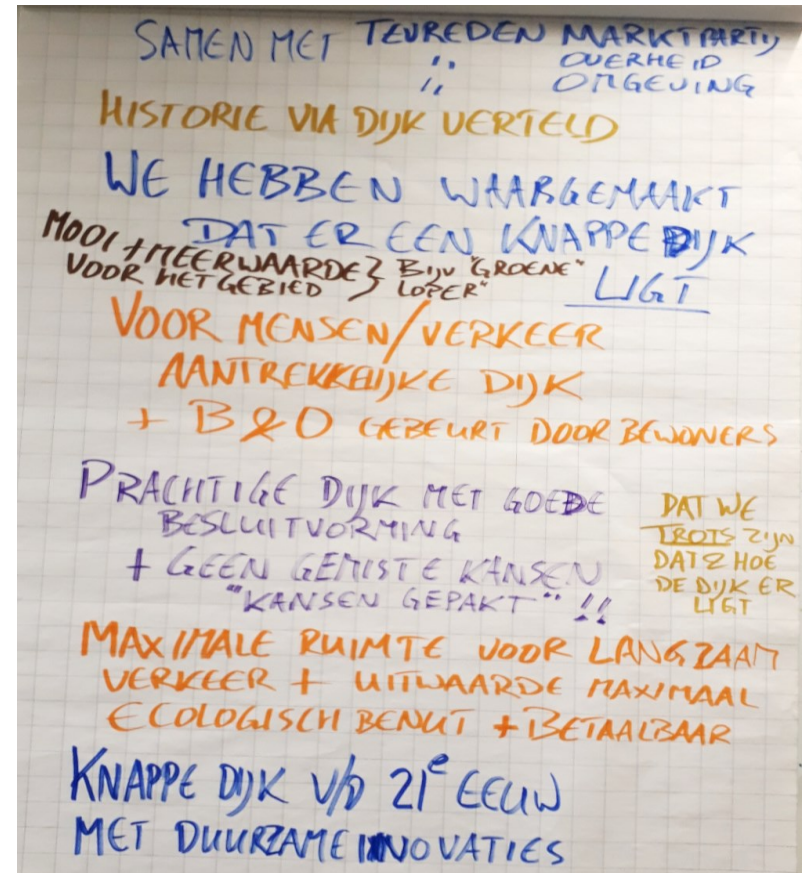 SAMEN MET TEVREDEN MARKTPARTIJ
,, OVERHEID
,, OMGEVING
HISTORIE VIA DIJK VERTELD
WE HEBBEN WAARGEMAAKT
DAT ER EEN KNAPPE DIJK
LIGT
MOOI + MEERWAARDE } BIJV "GROENE"
VOOR HET GEBIED } LOPER"
VOOR MENSEN/VERKEER
AANTREKKELIJKE DIJK
+ B&O GEBEURT DOOR BEWONERS
PRACHTIGE DIJK MET GOEDE
BESLUITVORMING
+ GEEN GEMISTE KANSEN
"KANSEN GEPAKT" !!
DAT WE
TROTS ZIJN
DAT & HOE
DE DIJK ER
LIGT
MAXIMALE RUIMTE VOOR LANGZAAM
VERKEER + UITWAARDE MAXIMAAL
ECOLOGISCH BENUT + BETAALBAAR
KNAPPE DIJK V/D 21e EEUW
MET DUURZAME INNOVATIES